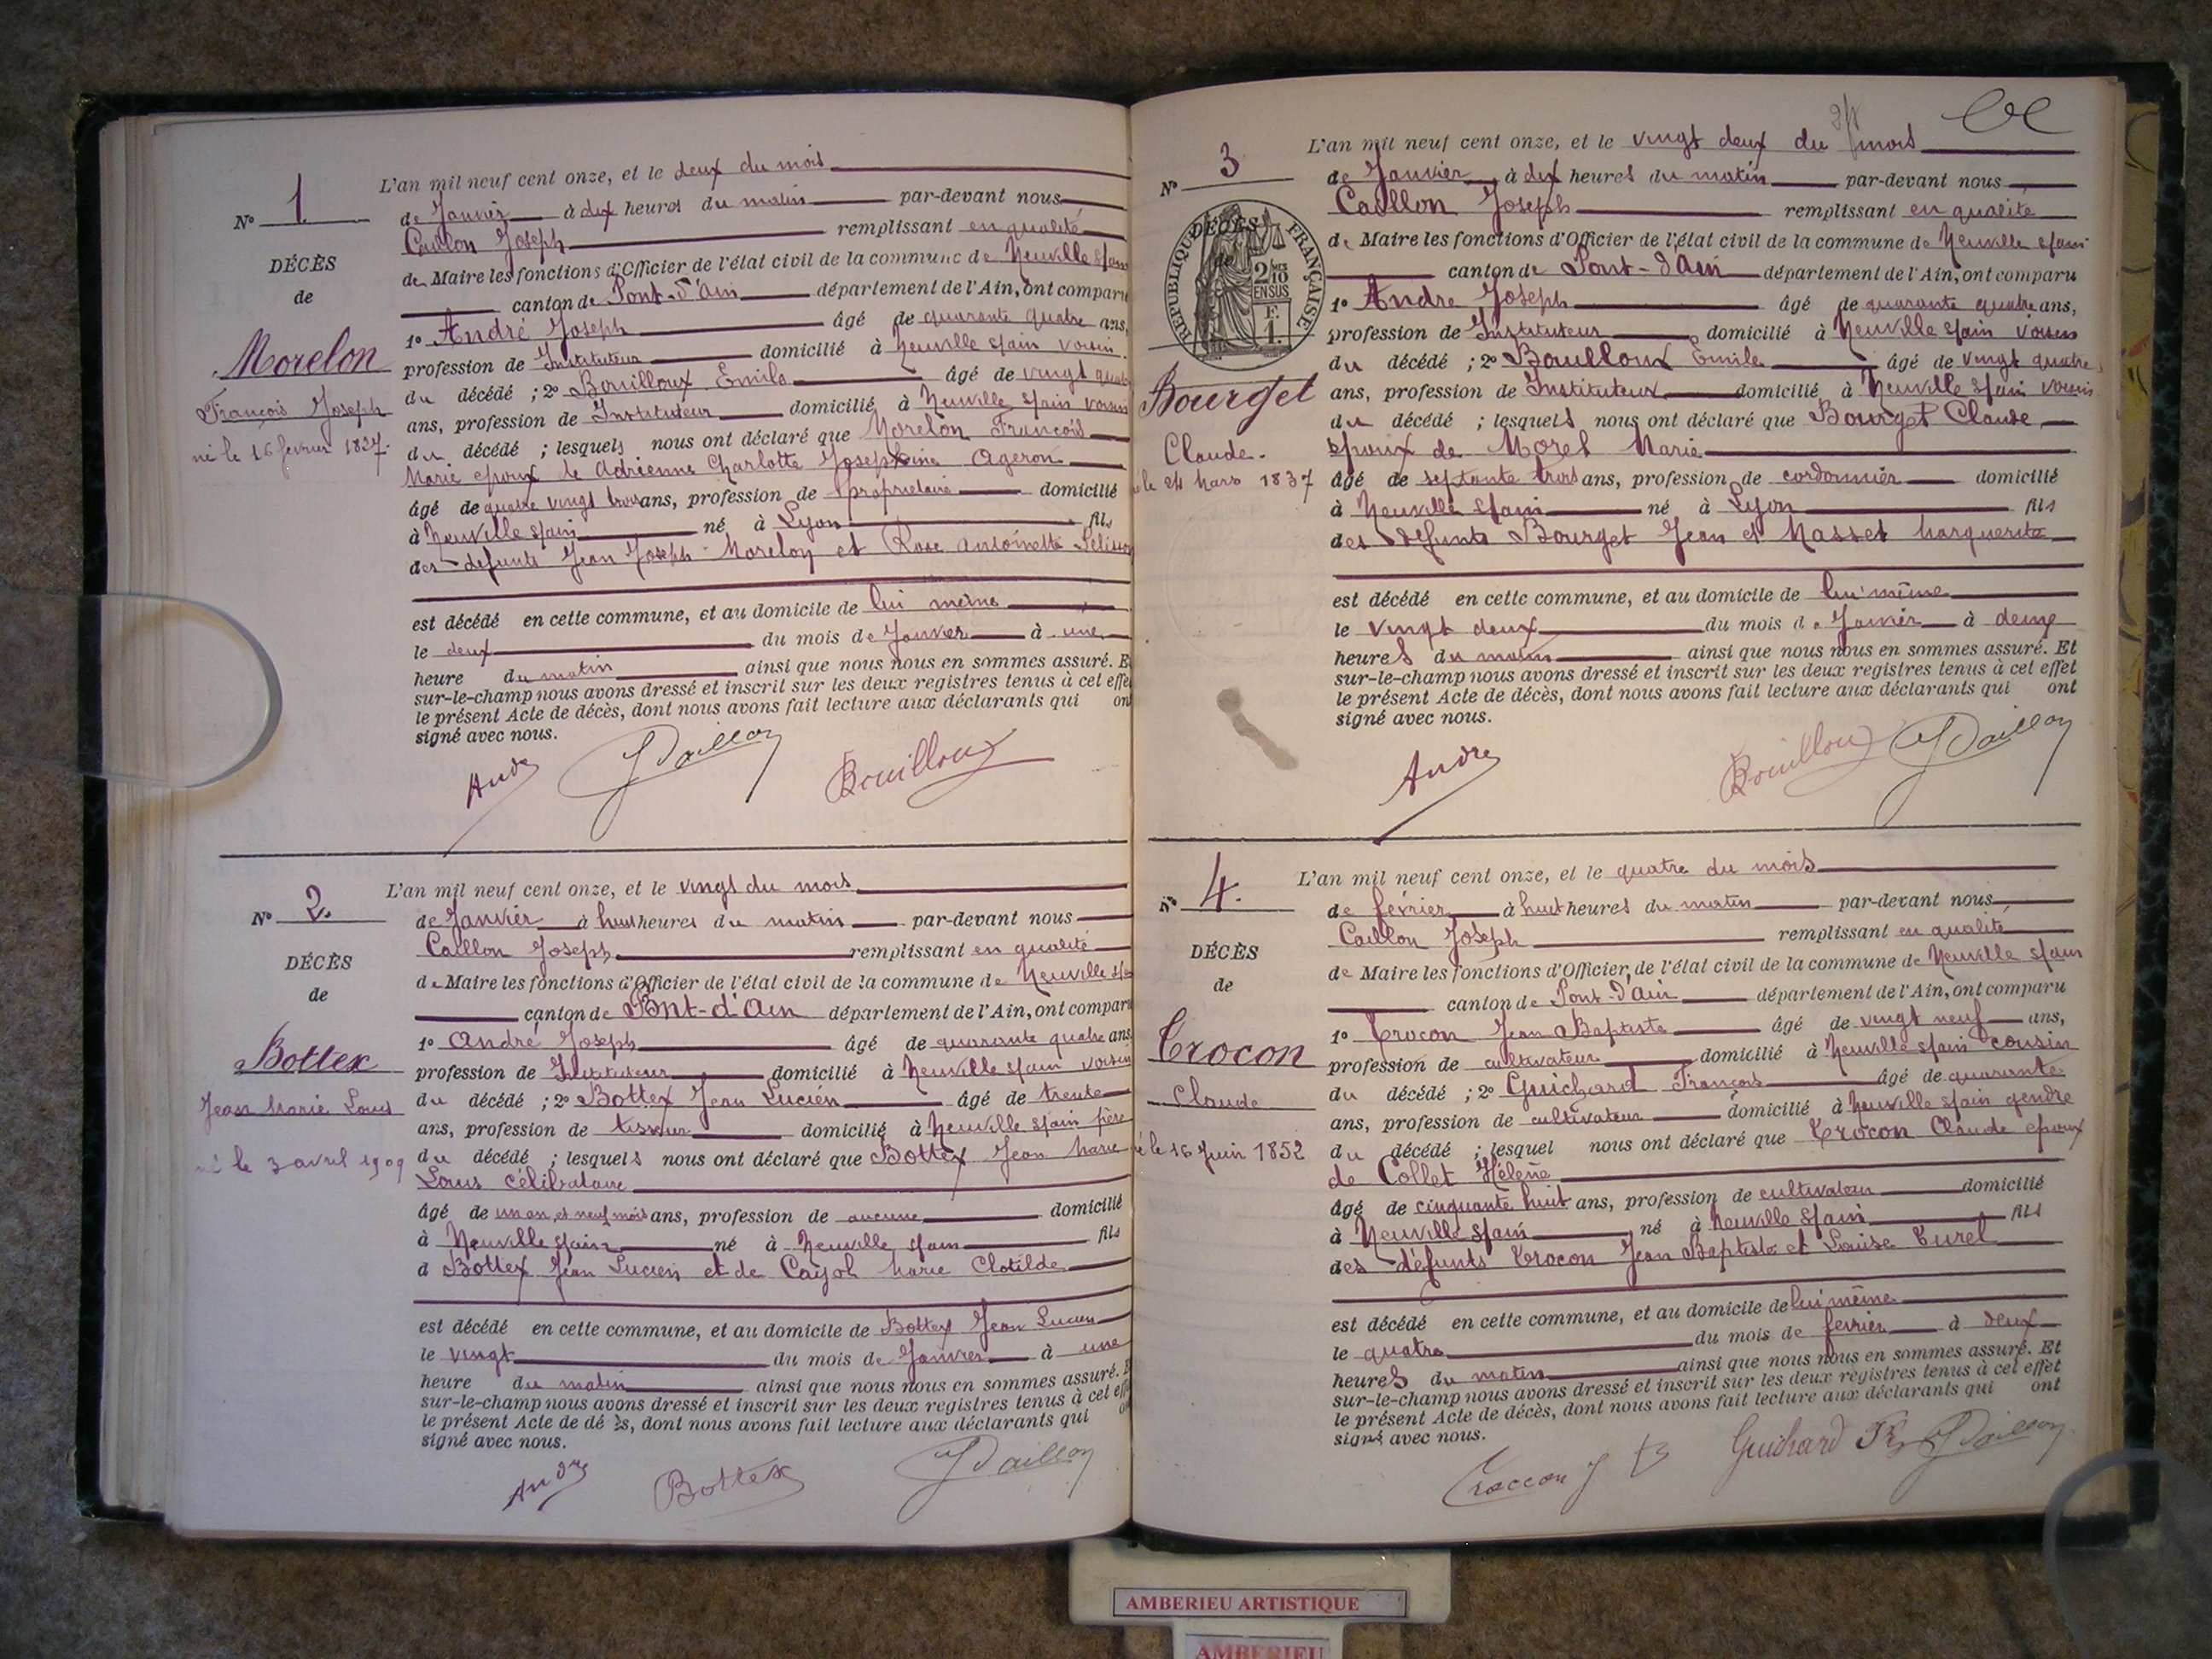 L'an mil neuf cent onze, et le deux du mois
N° 1.
de Janvier à dix heures du matin par-devant nous
Caillon Joseph remplissant en qualité
DÉCÈS
de Maire les fonctions d'Officier de l'état civil de la commune de Neuville s/ain
de
canton de Pont-d'Ain département de l'Ain, ont comparu
1° André Joseph âgé de quarante quatre ans,
Morelon
profession de Instituteur domicilié à Neuville s/ain voisin
du décédé ; 2° Bouilloux Emile âgé de vingt quatre
François Joseph
ans, profession de Instituteur domicilié à Neuville s/ain voisin
né le 16 fevrier 1827.
du décédé ; lesquels nous ont déclaré que Morelon François
Marie epoux de Adrienne Charlotte Josephine Ageron
âgé de quatre vingt trois ans, profession de propriétaire domicilié
à Neuville s/ain né à Lyon fils
des defunts Jean Joseph Morelon et Rose Antoinette
est décédé en cette commune, et au domicile de lui même
le deux du mois de Janvier à une
heure du matin ainsi que nous nous en sommes assuré. Et
sur-le-champ nous avons dressé et inscrit sur les deux registres tenus à cet effet
le présent Acte de décès, dont nous avons fait lecture aux déclarants qui ont
signé avec nous.
André JCaillon Bouilloux
L'an mil neuf cent onze, et le vingt du mois
N° 2.
de Janvier à huit heures du matin par-devant nous
Caillon Joseph remplissant en qualité
DÉCÈS
de Maire les fonctions d'Officier de l'état civil de la commune de Neuville s/ain
de
canton de Pont-d'Ain département de l'Ain, ont comparu
1° André Joseph âgé de quarante quatre ans
Bottex
profession de Instituteur domicilié à Neuville s/ain voisin
Jean Marie Louis
du décédé ; 2° Bottex Jean Lucien âgé de trente
ans, profession de tisseur domicilié à Neuville s/ain père
né le 3 avril 1909
du décédé ; lesquels nous ont déclaré que Bottex Jean Marie
Louis célibataire
âgé de un an et neuf mois ans, profession de aucune domicilié
à Neuville s/ain né à Neuville s/ain fils
d Bottex Jean Lucien et de Cayol Marie Clotilde
est décédé en cette commune, et au domicile de Bottex Jean Lucien
le vingt du mois de Janvier à une
heure du matin ainsi que nous nous en sommes assuré. E
sur-le-champ nous avons dressé et inscrit sur les deux registres tenus à cet effet
le présent Acte de dé ès, dont nous avons fait lecture aux déclarants qui
signé avec nous.
André Bottex JCaillon
L'an mil neuf cent onze, et le vingt deux du mois
N° 3
de Janvier à dix heures du matin par-devant nous
Caillon Joseph remplissant en qualité
RÉPUBLIQUE FRANÇAISE
DÉCÈS
de
2/10 EN SUS
F. 1.
de Maire les fonctions d'Officier de l'état civil de la commune de Neuville s/ain
canton de Pont-d'Ain département de l'Ain, ont comparu
1° André Joseph âgé de quarante quatre ans,
profession de Instituteur domicilié à Neuville s/ain voisin
du décédé ; 2° Bouilloux Emile âgé de vingt quatre
Bourget
ans, profession de Instituteur domicilié à Neuville s/ain voisin
du décédé ; lesquels nous ont déclaré que Bourget Claude
Claude.
époux de Morel Marie
le 24 Mars 1837
âgé de septante trois ans, profession de cordonnier domicilié
à Neuville s/ain né à Lyon fils
des défunts Bourget Jean et Masset Marguerite
est décédé en cette commune, et au domicile de lui même
le vingt deux du mois de Janvier à deux
heures du matin ainsi que nous nous en sommes assuré. Et
sur-le-champ nous avons dressé et inscrit sur les deux registres tenus à cet effet
le présent Acte de décès, dont nous avons fait lecture aux déclarants qui ont
signé avec nous.
André Bouilloux JCaillon
L'an mil neuf cent onze, et le quatre du mois
N° 4.
de février à huit heures du matin par-devant nous
Caillon Joseph remplissant en qualité
DÉCÈS
de Maire les fonctions d'Officier de l'état civil de la commune de Neuville s/ain
de
canton de Pont-d'Ain département de l'Ain, ont comparu
1° Crocon Jean Baptiste âgé de vingt neuf ans,
Crocon
profession de cultivateur domicilié à Neuville s/ain cousin
du décédé ; 2° Guichard François âgé de quarante
Claude
ans, profession de cultivateur domicilié à Neuville s/ain gendre
é le 16 Juin 1852
du décédé ; lesquel nous ont déclaré que Crocon Claude epoux
de Collet Hélène
âgé de cinquante huit ans, profession de cultivateur domicilié
à Neuville s/ain né à Neuville s/ain fils
des défunts Crocon Jean Baptiste et Louise Curel
est décédé en cette commune, et au domicile de lui même
le quatre du mois de fevrier à deux
heures du matin ainsi que nous nous en sommes assuré. Et
sur-le-champ nous avons dressé et inscrit sur les deux registres tenus à cet effet
le présent Acte de décès, dont nous avons fait lecture aux déclarants qui ont
signé avec nous.
Croccon J B Guichard Fs JCaillon
AMBERIEU ARTISTIQUE
AMBERIEU